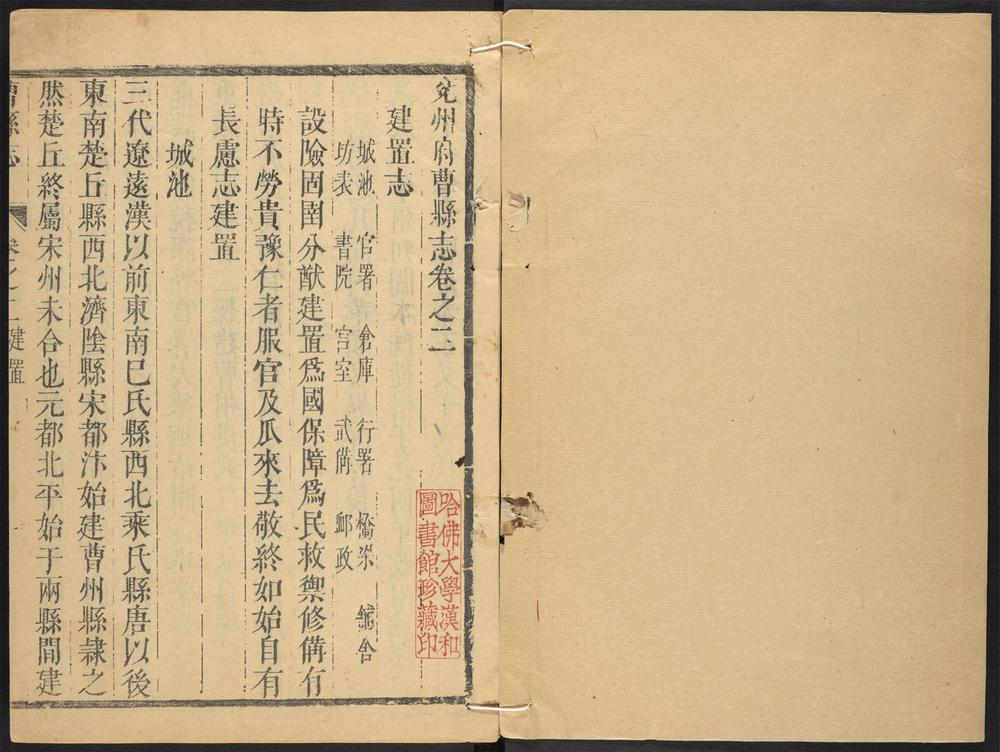 兖州府曹縣志卷之二
建置志
城池 官署 倉庫 行署 橋梁 舖舍
坊表 書院 宫室 武備 郵政
設險固圉分猷建置爲國保障爲民救禦修備有
時不勞貴豫仁者服官及瓜來去敬終如始自有
長慮志建置
城池
三代遼遠漢以前東南巳氏縣西北乘氏縣唐以後
東南楚丘縣西北濟隂縣宋都汴始建曹州縣隷之
然楚丘終屬宋州未合也元都北平始于兩縣間建
曹縣志 卷之二建置
哈佛大學漢和
圖書館珍藏印